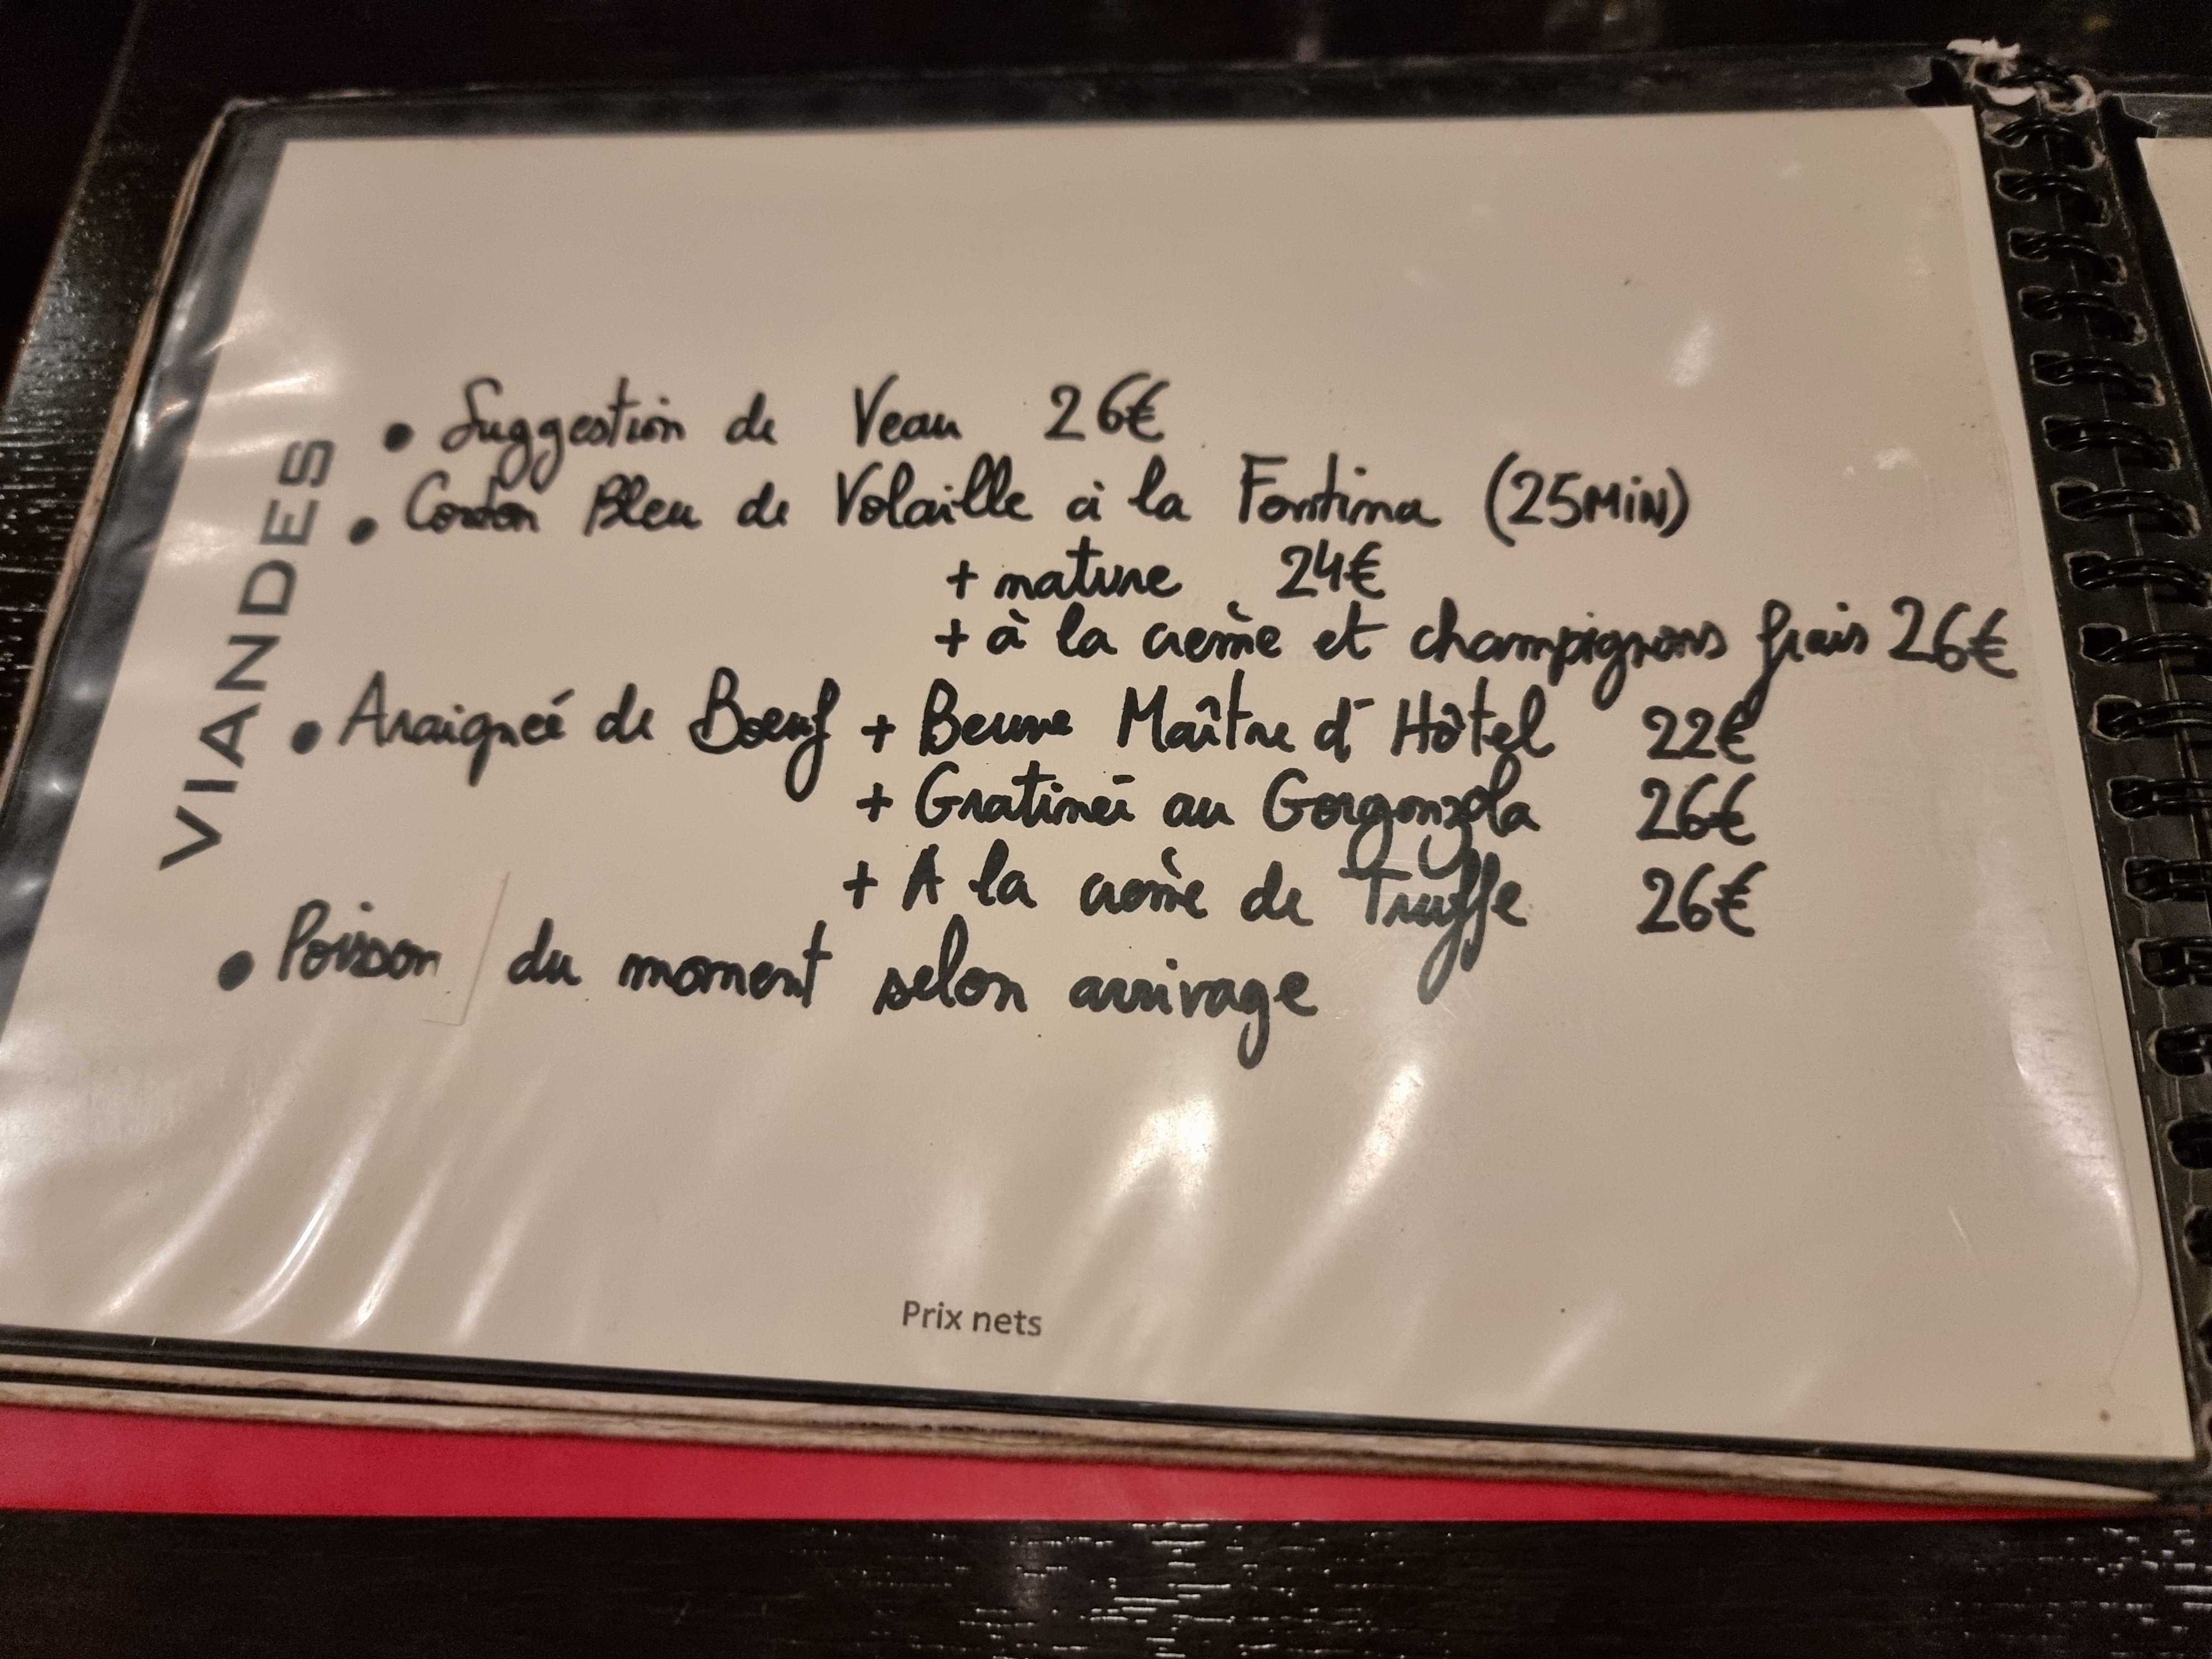 VIANDES
• Suggestion de Veau 26€
• Cordon Bleu de Volaille à la Fontina (25MiN)
+ nature 24€
+ à la crème et champignons frais 26€
• Araignée de Boeuf + Beurre Maître d'Hôtel 22€
+ Gratinée au Gorgonzola 26€
+ A la crème de Truffe 26€
• Poisson du moment selon arrivage
Prix nets